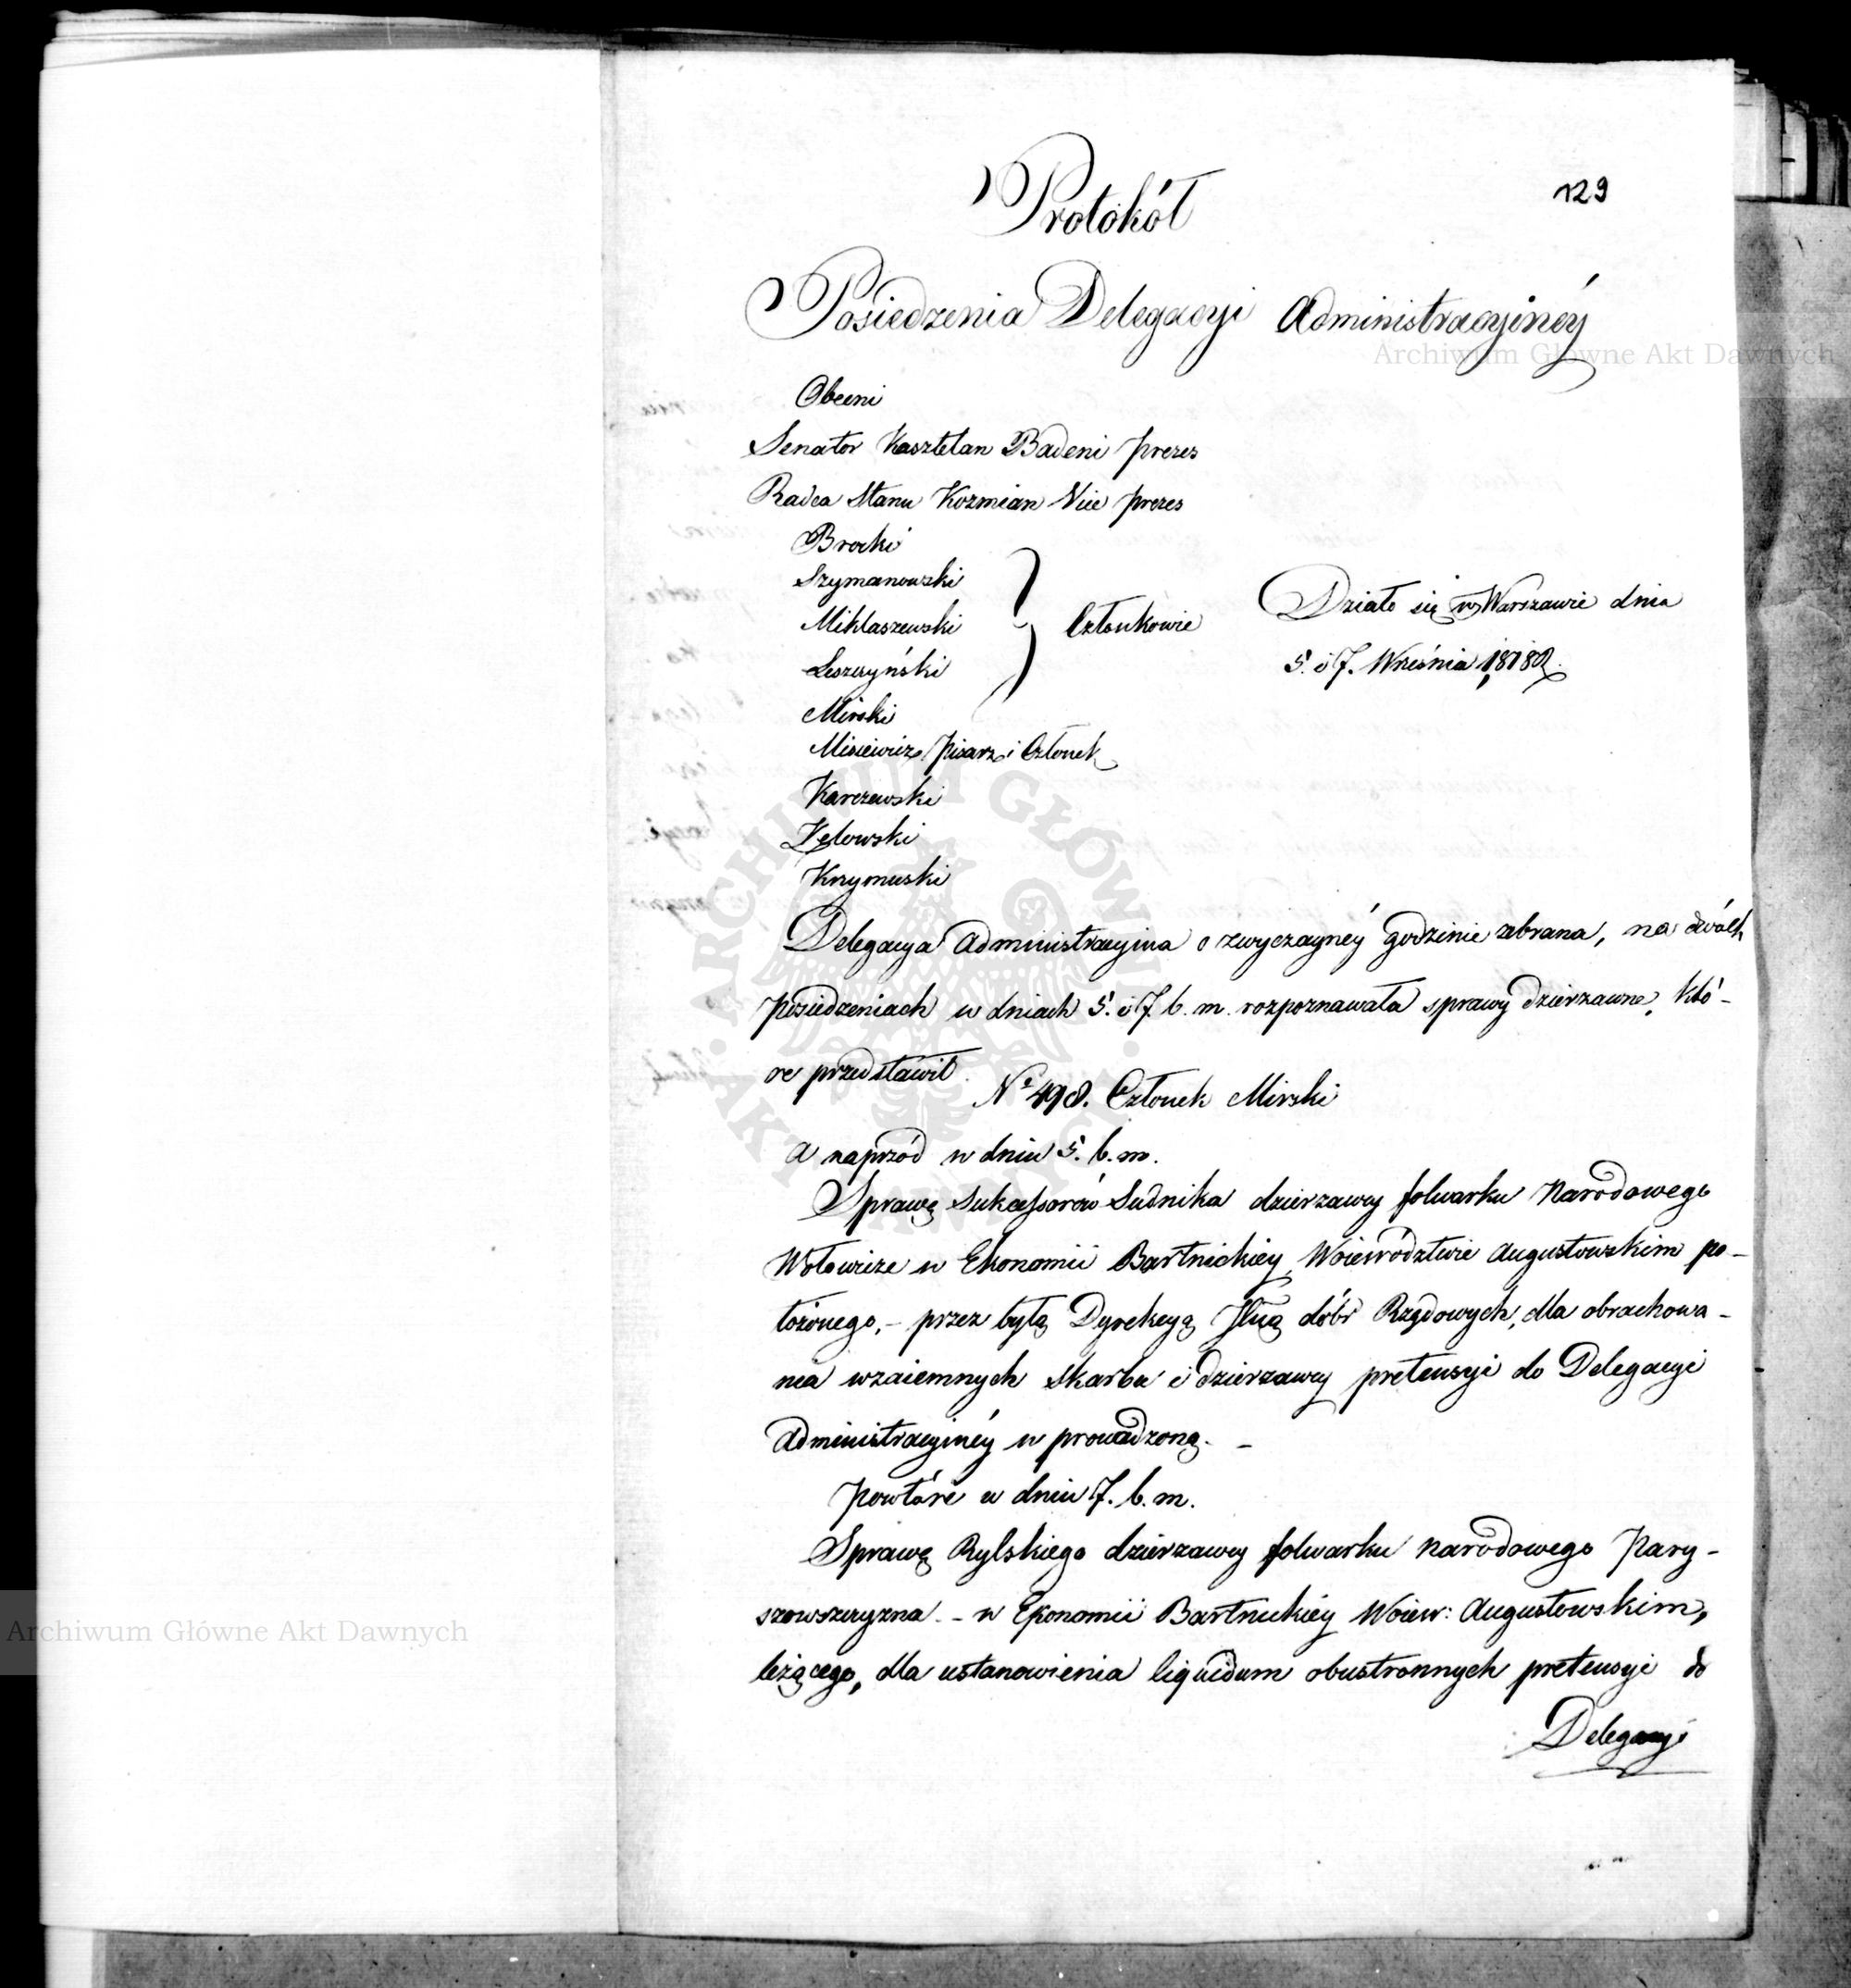 129
Protokół
Posiedzenia Delegacyi Administracyinéy
Obecni
Senator Kasztelan Badeni Prezes
Radca Stanu Kozmian Vice prezes
Brocki
Szymanowski
Miklaszewski
Członkowie
Leszczyński
Mirski
Misiewicz Pisarz i Członek
Karczewski
Krzymuski
Działo się w Warszawie dnia
5. i 7. Września 1818 R.
Delegacya Administracyina o zwyczaynéy godzinie zebrana, na dwóch
Posiedzeniach w dniach 5. i 7. b. m. rozpoznawała sprawy dzierzawne, któ-
re przedstawił
Nº 498. Członek Mirski
a naprzód w dniu 5. b. m.
Sprawę Sukcessorów Sudnika dzierzawcy folwarku Narodowego
Wołowicze w Ekonomii Bartnickiéy Woiewództwie Augustowskim po-
łożonego, - przez byłą Dyrekcyą Jlną dóbr Rządowych, dla obrachowa-
nia wzaiemnych Skarbu i dzierzawcy pretensyi do Delegacyi
Administracyinéy w prowadzoną. -
Powtóre w dniu 7. b. m.
Sprawę Rylskiego dzierzawcy folwarku narodowego Pary-
szowszczyzna - w Ekonomii Bartnickiéy Woiew: Augustowskim,
leżącego, dla ustanowienia liquidum obustronnych pretensyi do
Delegacyi
Archiwum Główne Akt Dawnych
Archiwum Główne Akt Dawnych
ARCHIWUM GŁÓWNE AKT DAWNYCH